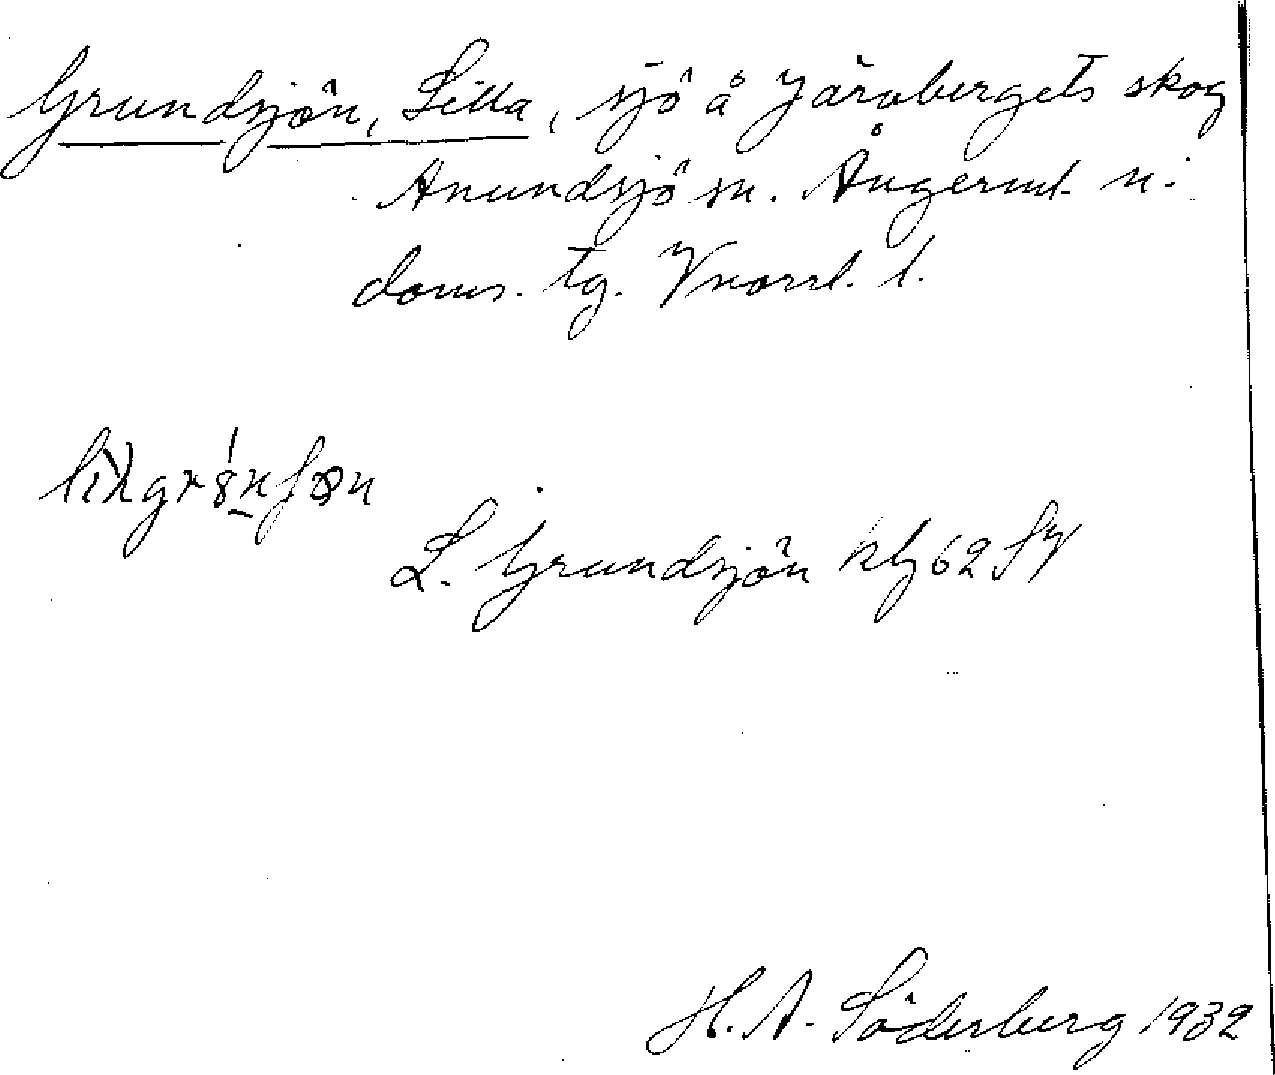 Grundsjön, Lilla, sjö å Järvbergets skog
Anundsjö sn. Ångerml. n.
doms. tg. Vnorrl. l.
L. Grundsjön kbl 62 SV
H. A. Söderberg 1932